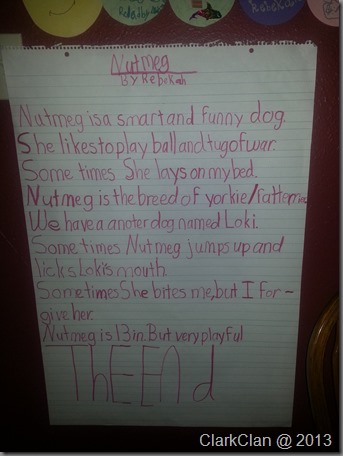 Nutmeg
By Rebekah
Nutmeg is a smart and funny dog.
She likes to play ball and tug of war.
Some times She lays on my bed.
Nutmeg is the breed of yorkie/
We have a anoter dog named Loki.
Some times Nutmeg jumps up and
licks Loki's mouth.
Sometimes She bites me, but I for-
give her.
Nutmeg is 13 in. But very playful
ThE End
ClarkClan @ 2013